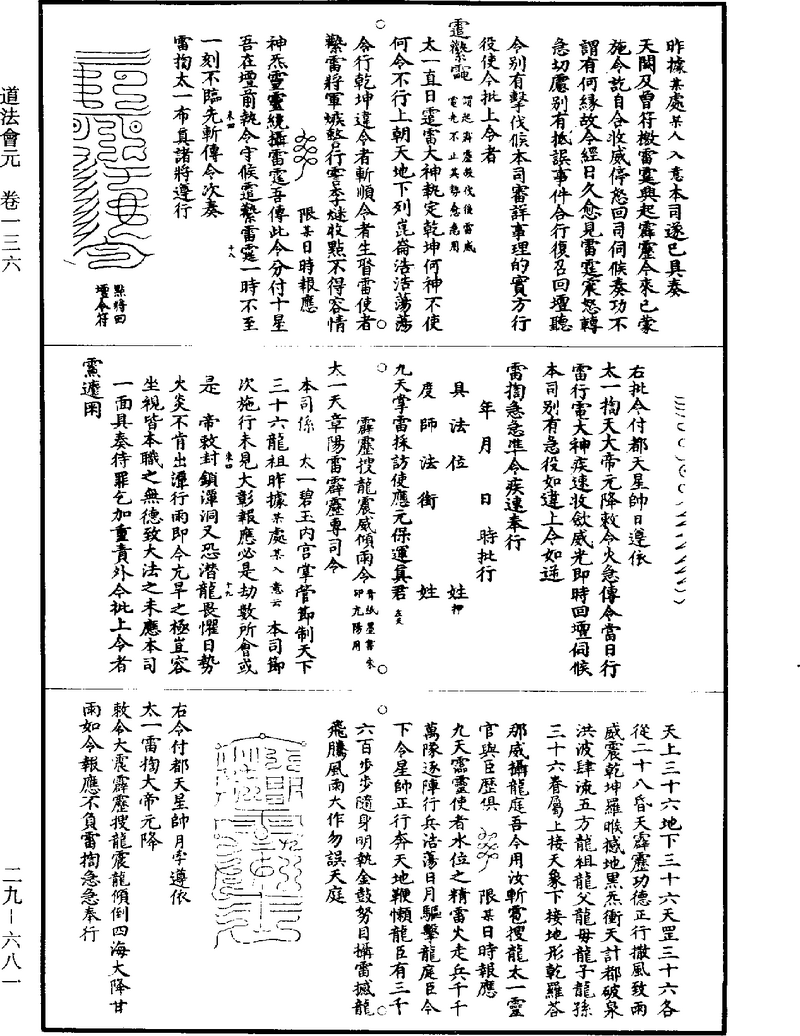 道法會元 卷一三六
二九—六八一
昨據某處某人入意本司遂已具奏
天闕及曾符檄雷霆興起霹靂今來已蒙
施令訖自合收威停怒回司伺候奏功不
謂有何緣故今經日久愈見雷霆震怒轉
急切慮別有抵誤事件合行復召回壇聽
令別有擊伐候本司審詳事理的實方行
役使令批上令者
太一直日霆雷大神執定乾坤何神不使
何令不行上朝天地下列崑崙浩浩蕩蕩
令行乾坤違令者斬順令者生督雷使者
限某日時報應
神炁靈靈繞攝雷霆吾傳此令分付十星
吾在壇前執令守候霆鷘雷霆一時不至
一刻不臨先斬傳令次奏
雷掏太一布真諸將遵行
點將回
壇令符
右批令付都天星帥日遵依
太一掏天大帝元降敕令火急傳令當日行
雷行電大神疾速收歛威光即時回壇伺候
本司別有急役如違上令如逆
雷掏急急準令疾速奉行
年 月 日 時批行
具 法 位 姓 押
度 師 法 銜 姓
九天掌雷採訪使應元保運真君
霹靂搜龍震威傾雨令
太一天章陽雷霹靂專司令
本司係 太一碧玉內宮掌管節制天下
三十六龍祖昨據某處某人意云 本司節
次施行未見大彰報應必是劫數所會或
是 帝敕封鎖潭洞又恐潛龍畏懼日勢
火炎不肯出潭行雨即今亢旱之極豈容
坐視皆本職之無德致大法之未應本司
一面具奏待罪乞加重責外令批上令者
天上三十六地下三十六天罡三十六各
從二十八昏天霹靂功德正行撒風致雨
威震乾坤羅睺撼地黑炁衝天計都破泉
洪波肆流五方龍祖龍父龍母龍子龍孫
三十六眷屬上接天象下接地形乾羅荅
那威攝龍庭吾今用汝斬雹搜龍太一靈
官與臣歷俱 限某日時報應
九天霹靈使者水位之精雷火走兵千千
萬隊逐陣行兵浩蕩日月驅擊龍庭臣令
下令星帥正行奔天地鞭懶龍臣有三千
六百步步隨身明執金鼓努目攝雷撼龍
飛騰風雨大作勿誤天庭
右令付都天星帥月孛遵依
太一雷掏大帝元降
敕令大震霹靂搜龍震龍傾倒四海大降甘
雨如令報應不負雷掏急急奉行